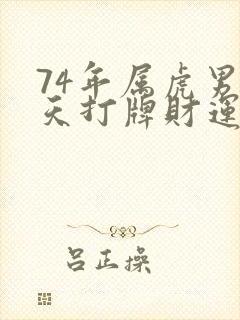 74年属虎男
天打牌财运
吕正操